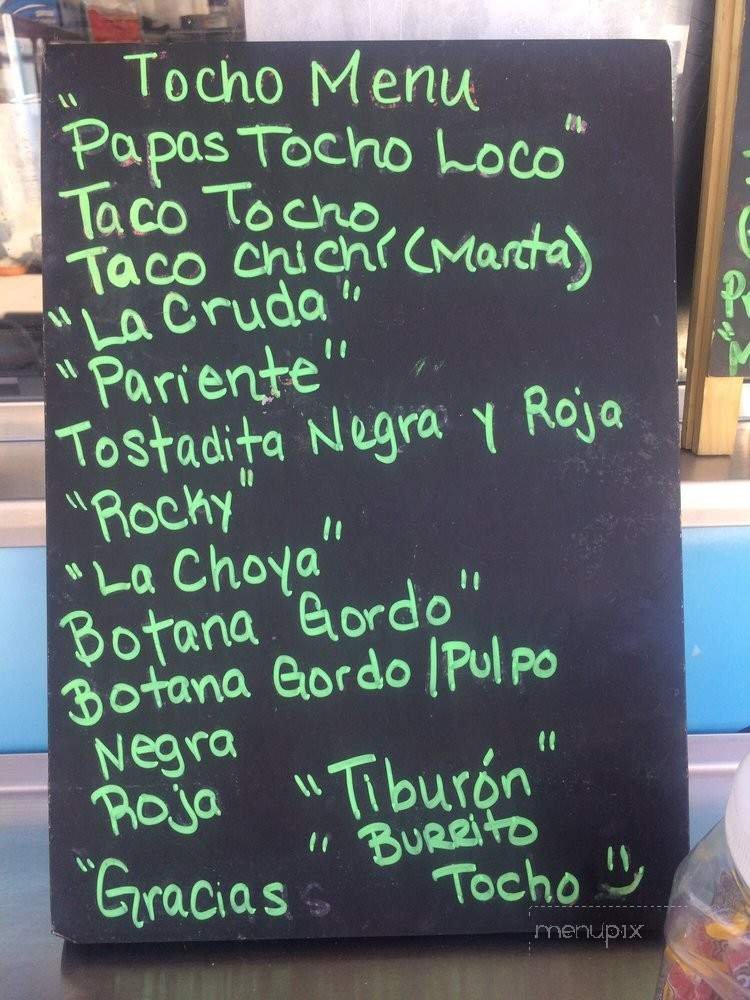 Tocho Menu
"Papas Tocho Loco"
Taco Tocho
Taco Chichi (Manta)
"La Cruda"
"Pariente"
Tostadita Negra y Roja
"Rocky"
"La Choya"
Botana Gordo"
Botana Gordo/Pulpo
Negra
Roja
"Tiburón"
" Burrito
Tocho
"Gracias
menupix